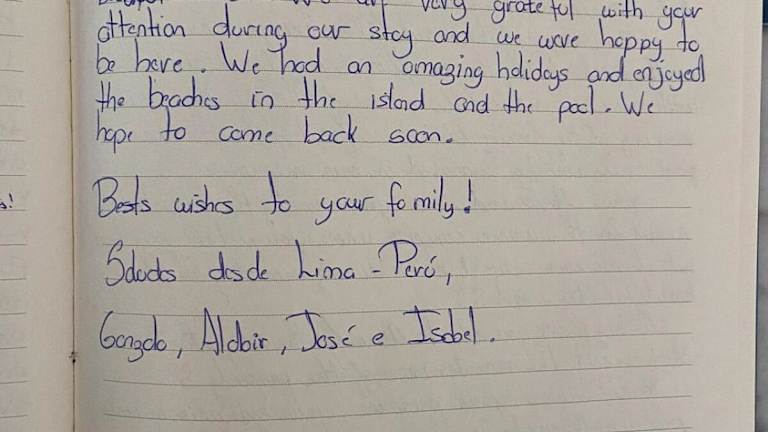 We are very grateful with your
attention during our stay and we were happy to
be here. We had an amazing holidays and enjoyed
the beaches in the island and the pool. We
hope to come back soon.
Bests wishes to your family!
s!
Saludos desde Lima - Perú,
Gonzalo, Aldair, José e Isabel.